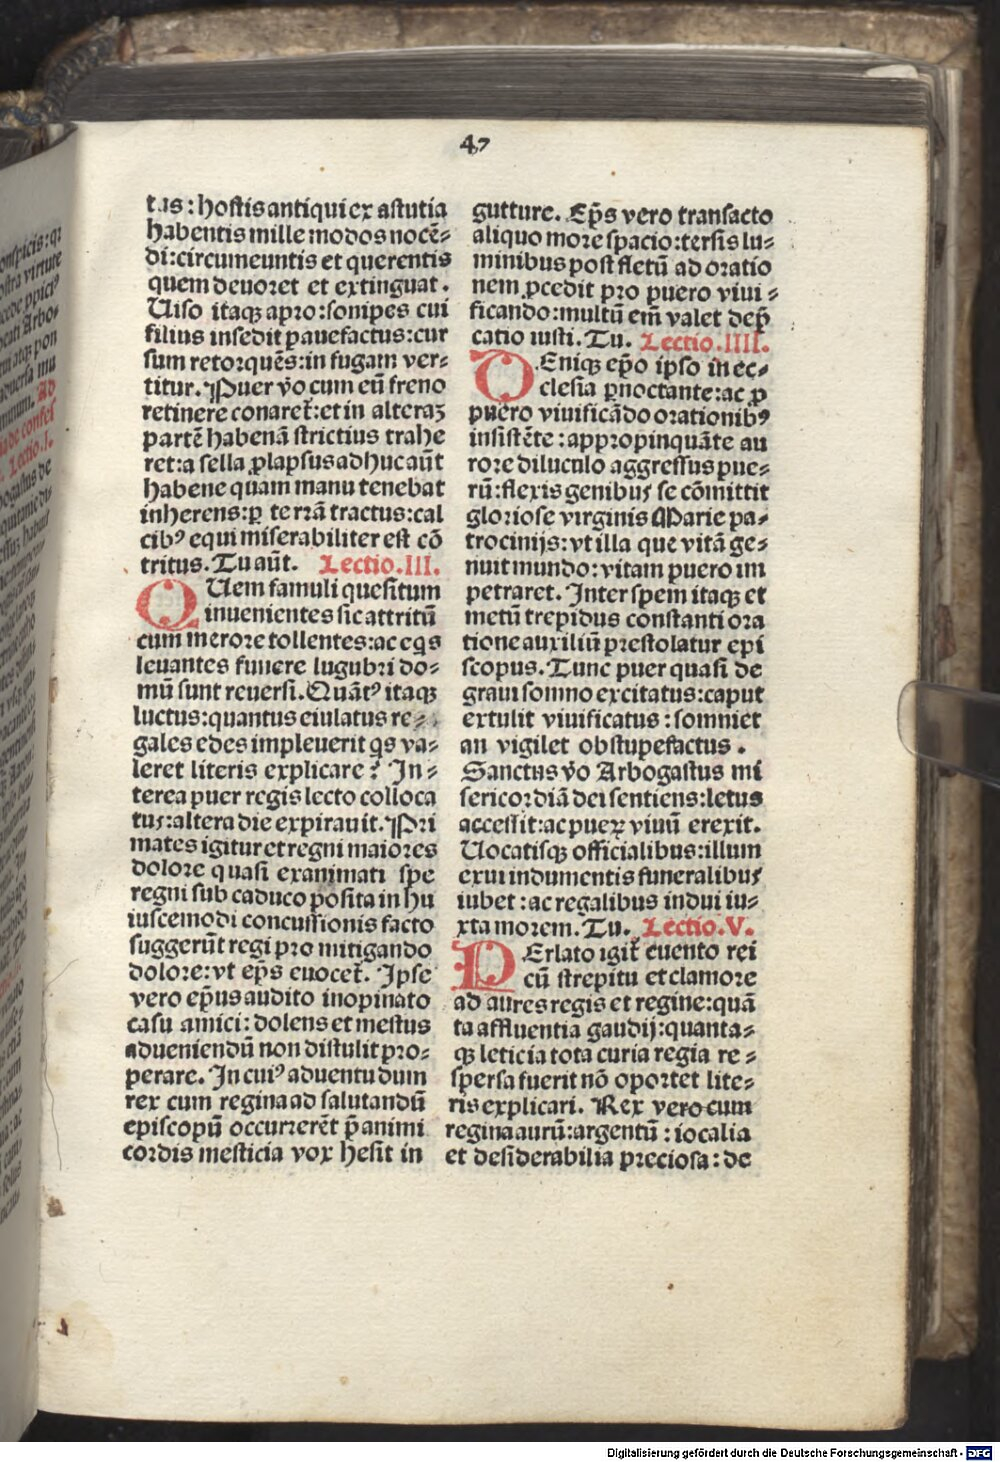 47
tus: hostis antiqui ex astutia
habentis mille modos nocē⸗
di: circumeuntis et querentis
quem deuoret et extinguat.
Uiso itaqꝫ apro: sonipes cui
filius insedit pauefactus: cur
sum retorquēs: in fugam ver⸗
titur. Puer v̄o cum eū freno
retinere conaret᷑: et in alteraꝫ
partē habenā strictius trahe
ret: a sella ꝓlapsus adhuc aūt
habene quam manu tenebat
inherens: ꝑ terrā tractus: cal
cibꝰ equi miserabiliter est cō
tritus. Tu aūt. Lectio.III.
QUem famuli quesitum
inuenientes sic attritū
cum merore tollentes: ac eq̄s
leuantes funere lugubri do⸗
mū sunt reuersi. Quātꝰ itaqꝫ
luctus: quantus eiulatus re⸗
gales edes impleuerit q̄s va⸗
leret literis explicare? In⸗
terea puer regis lecto colloca
tus: altera die expirauit. Pri
mates igitur et regni maiores
dolore quasi exanimati spe
regni sub caduco posita in hu
iuscemodi concussionis facto
suggerūt regi pro mitigando
dolore: vt ep̄s euocet᷑. Ipse
vero ep̄us audito inopinato
casu amici: dolens et mestus
adueniendū non distulit pro⸗
perare. In cuiꝰ aduentu dum
rex cum regina ad salutandū
episcopū occurrerēt p̄ animi
cordis mesticia vox hesit in
gutture. Ep̄s vero transacto
aliquo more spacio: tersis lu⸗
minibus post fletū ad oratio
nem ꝓcedit pro puero viui⸗
ficando: multū em̄ valet dep̄
catio iusti. Tu. Lectio.IIII.
DEniqꝫ ep̄o ipso in ec⸗
clesia ꝑnoctante: ac ꝓ
puero viuificādo orationibꝰ
insistēte: appropinquāte au
rore diluculo aggressus pue⸗
rū: flexis genibus se cōmittit
gloriose virginis Marie pa⸗
trocinijs: vt illa que vitā ge⸗
nuit mundo: vitam puero im
petraret. Inter spem itaqꝫ et
metū trepidus constanti ora
tione auxiliū prestolatur epi
scopus. Tunc puer quasi de
graui somno excitatus: caput
extulit viuificatus: somniet
an vigilet obstupefactus.
Sanctus v̄o Arbogastus mi
sericordiā dei sentiens: letus
accessit: ac pueꝝ viuū erexit.
Uocatisqꝫ officialibus: illum
exui indumentis funeralibus
iubet: ac regalibus indui iu⸗
xta morem. Tu. Lectio.V.
PErlato igit᷑ euento rei
cū strepitu et clamore
ad aures regis et regine: quā
ta affluentia gaudij: quanta⸗
qꝫ leticia tota curia regia re⸗
spersa fuerit nō oportet lite⸗
ris explicari. Rex vero cum
regina aurū: argentū: iocalia
et desiderabilia preciosa: de
Digitalisierung gefördert durch die Deutsche Forschungsgemeinschaft - DFG